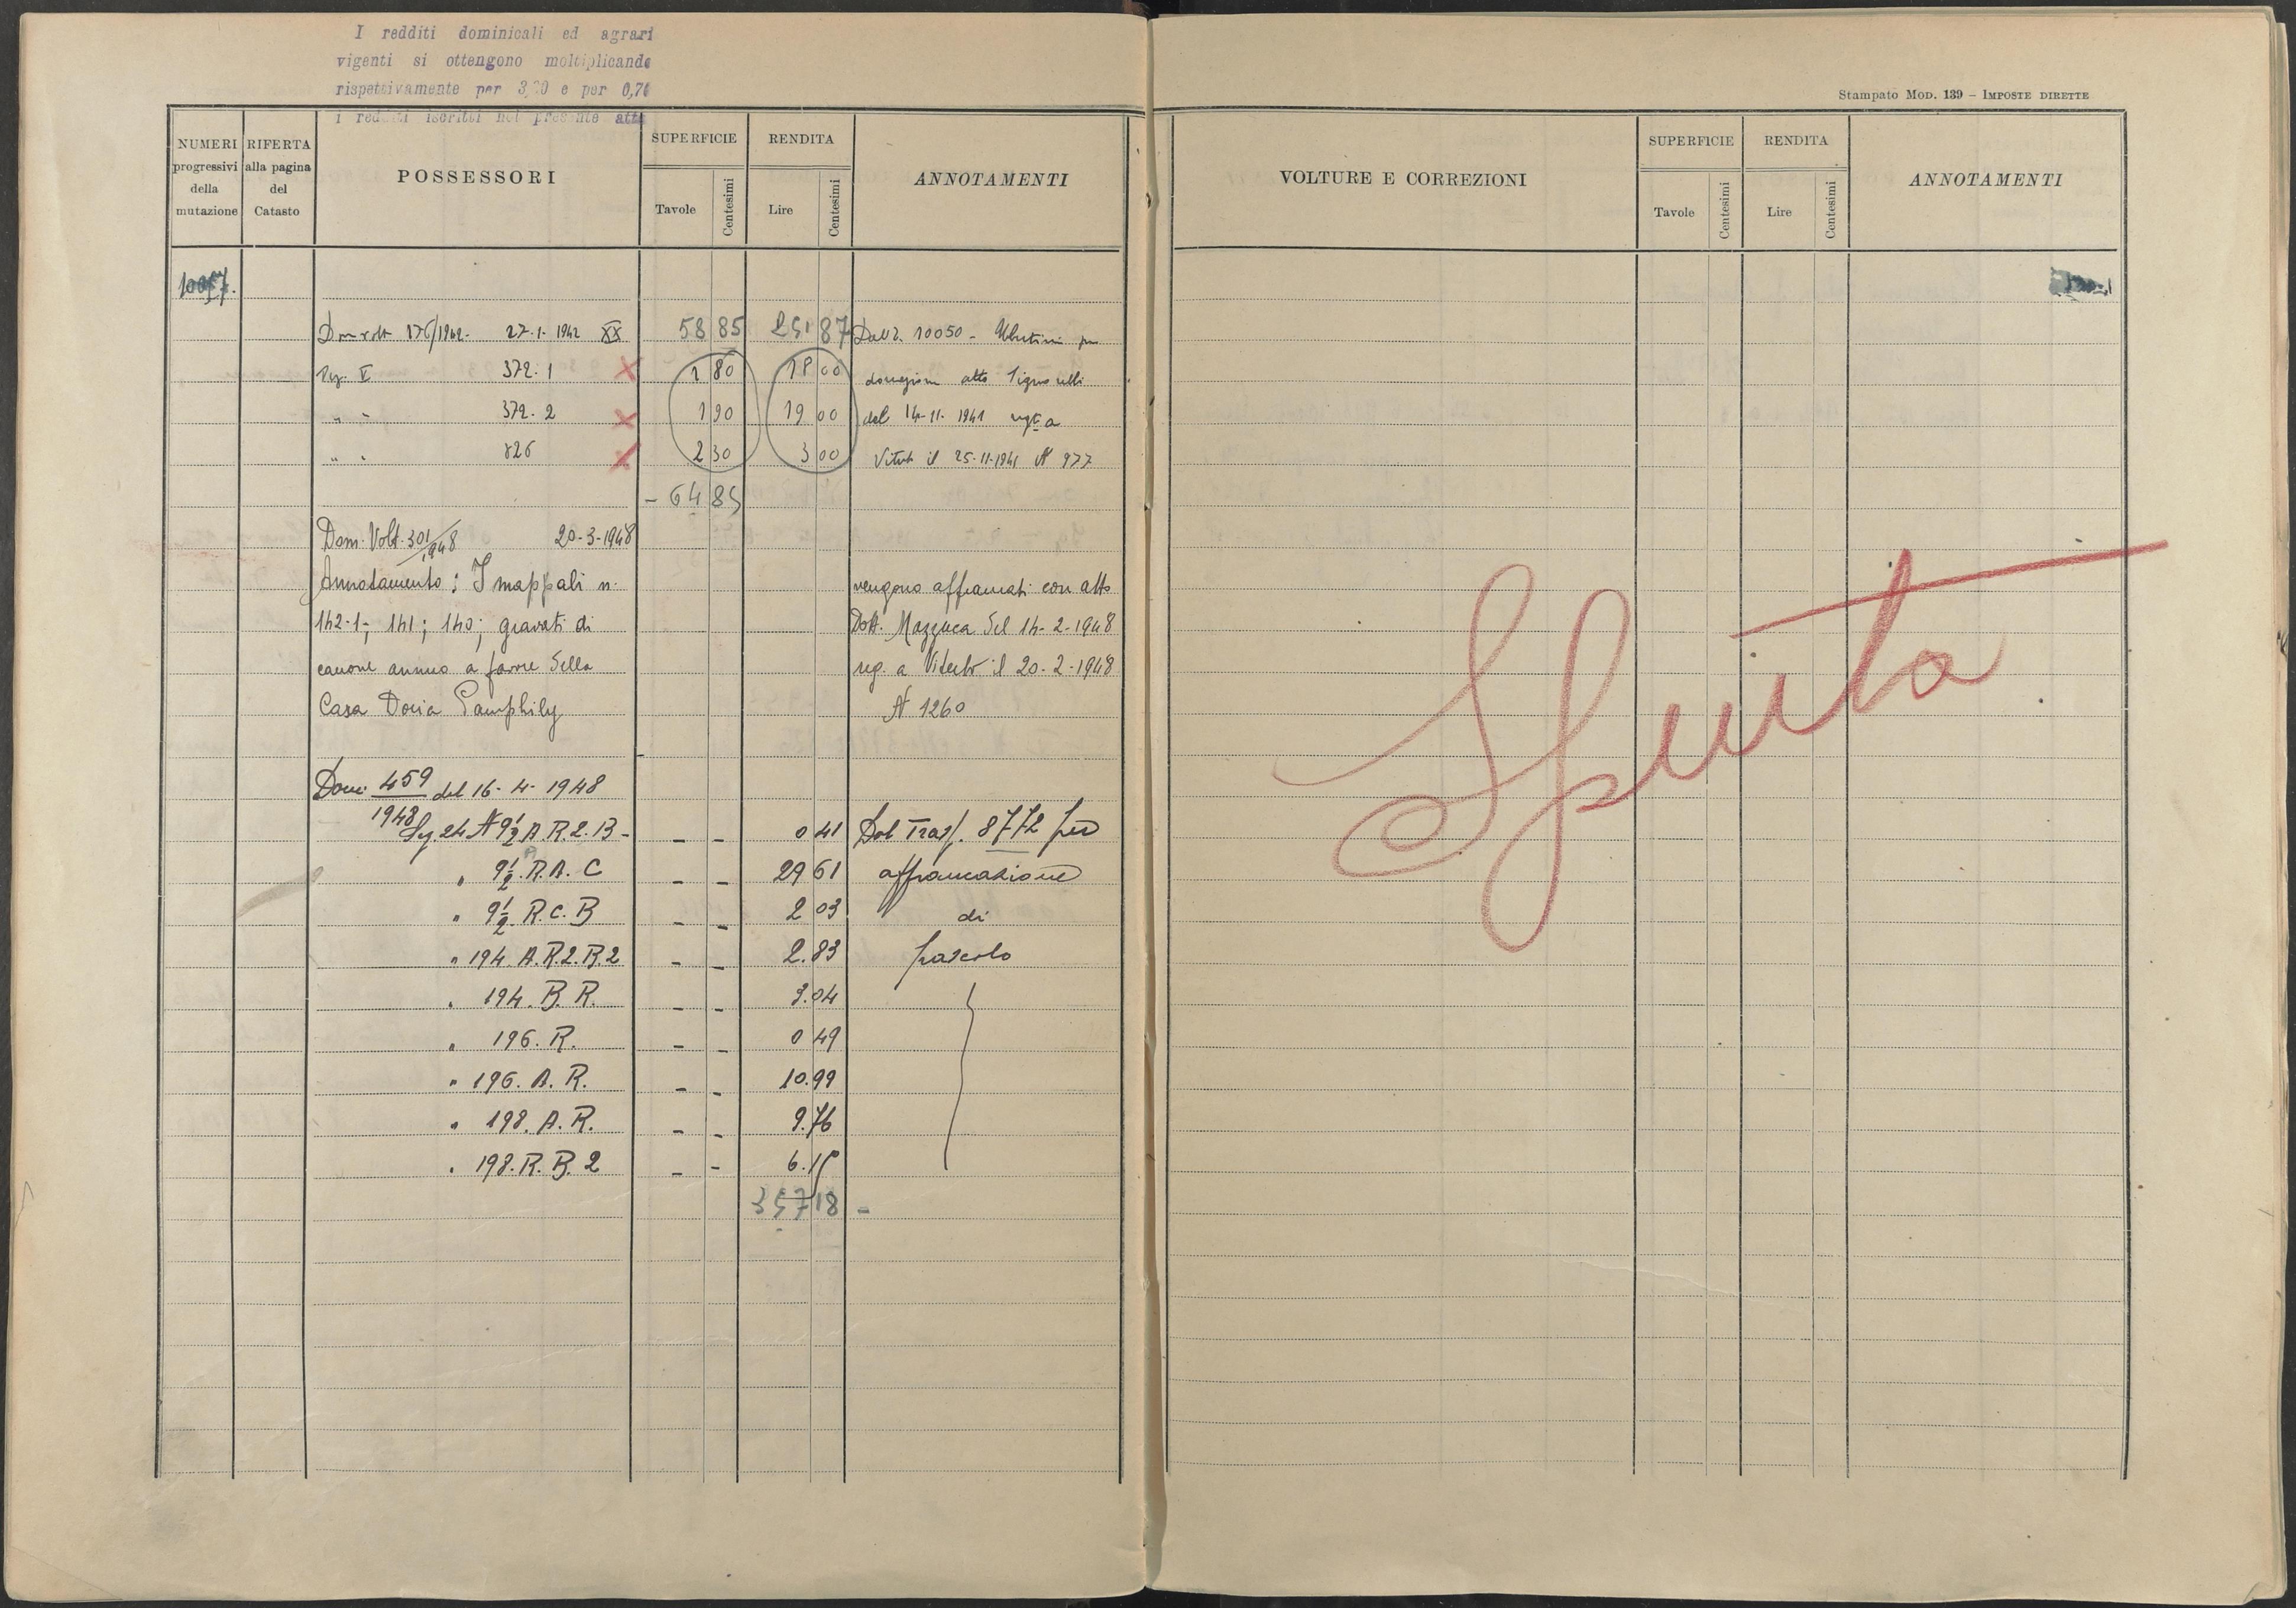 I redditi dominicali ed agrari
vigenti si ottengono moltiplicando
rispettivamente per e per 0,70
i redditi iscritti nel presente atto
Stampato Mod. 139 – Imposte dirette
NUMERI progressivi della mutazione
RIFERTA alla pagina del Catasto
POSSESSORI
SUPERFICIE
Tavole
Centesimi
RENDITA
Lire
Centesimi
ANNOTAMENTI
VOLTURE E CORREZIONI
SUPERFICIE
Tavole
Centesimi
RENDITA
Lire
Centesimi
ANNOTAMENTI
Dom volt 176/1942. 27.1.1942 XX 58 85 251 87 Dall 10050 -
372.1 1 80 18 00 donazione atto Signorelli
" " 372.2 1 90 19 00 del 14-11-1941 a
" " 826 2 30 3 00 il 25-11-1941 N 977
- 64 85
Dom. Volt. 301/1948 20-3-1948
Annotamento: I mappali n. vengono affrancati con atto
142-1; 141; 140; gravati di Dott. Mazzuca del 14-2-1948
canone annuo a favore della reg. a Viterbo il 20-2-1948
Casa Doria Pamphily N 1260
Dom 459/1948 del 16-4-1948
24 N 9 1/2 A.R.2.B - - - 0 41 Dal Trasf. 8772 per
" 9 1/2 R.A.C - - 29 61 affrancazione
" 9 1/2 R.C.B - - 2 03 di
" 194 A.R.2.B.2 - - 2.83 pascolo
" 194. B. R. - - 3.04
" 196. R. - - 0 49
" 196. A. R. - - 10.99
" 198. A. R. - - 9.76
" 198. R. B. 2 - - 6.15
357 18 -
Spenta